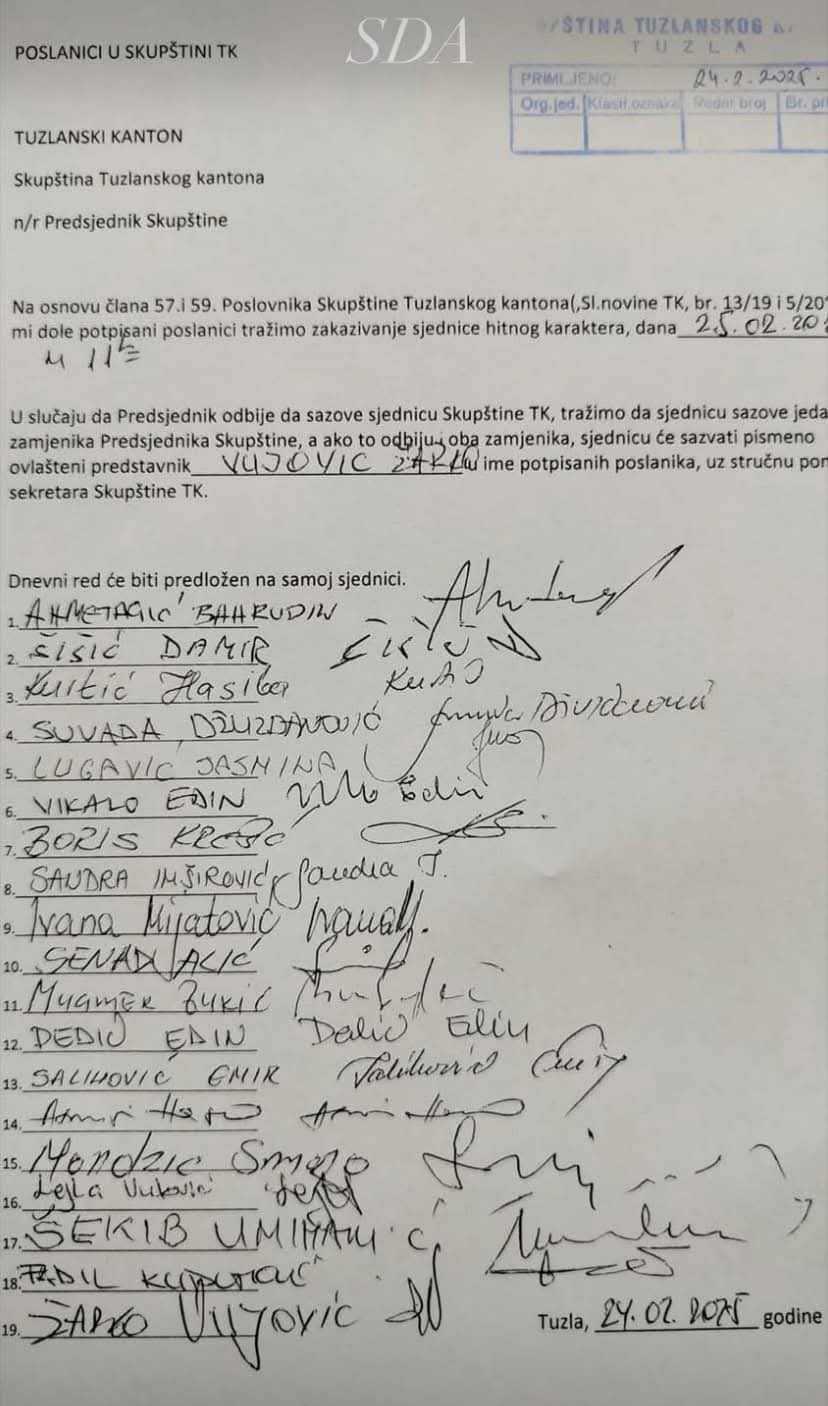 SDA
POSLANICI U SKUPŠTINI TK
ŠTINA TUZLANSKOG
TUZLA
PRIMLJENO: 24.2.2025.
Org.jed. Klasif.oznaka Redni broj Br. pri
TUZLANSKI KANTON
Skupština Tuzlanskog kantona
n/r Predsjednik Skupštine
Na osnovu člana 57.i 59. Poslovnika Skupštine Tuzlanskog kantona(,Sl.novine TK, br. 13/19 i 5/20
mi dole potpisani poslanici tražimo zakazivanje sjednice hitnog karaktera, dana 25.02.20
u 11
U slučaju da Predsjednik odbije da sazove sjednicu Skupštine TK, tražimo da sjednicu sazove jeda
zamjenika Predsjednika Skupštine, a ako to odbiju i oba zamjenika, sjednicu će sazvati pismeno
ovlašteni predstavnik VUJOVIC ŽARKO u ime potpisanih poslanika, uz stručnu pom
sekretara Skupštine TK.
Dnevni red će biti predložen na samoj sjednici.
1. AHMETAGIĆ BAHRUDIN
2. ŠIŠIĆ DAMIR
3. Kurtić Hasiba
4. SUVADA DŽUZDANOVIĆ
5. LUGAVIC JASMINA
6. VIKALO EDIN
7. BORIS KREŠIĆ
8. SANDRA IMŠIROVIĆ Sandra I.
9. Ivana Mijatović Ivana M.
10. SENAD ALIĆ
11. MUAMER ZUKIĆ
12. DEDIĆ EDIN Dedić Edin
13. SALIHOVIĆ EMIR Salihović Emir
14.
15. Mandzic Smajo
16. Lejla Vuković
17. ŠEKIB UMIHANIĆ
18. FADIL
19. ŽARKO VUJOVIĆ
Tuzla, 24.02.2025 godine